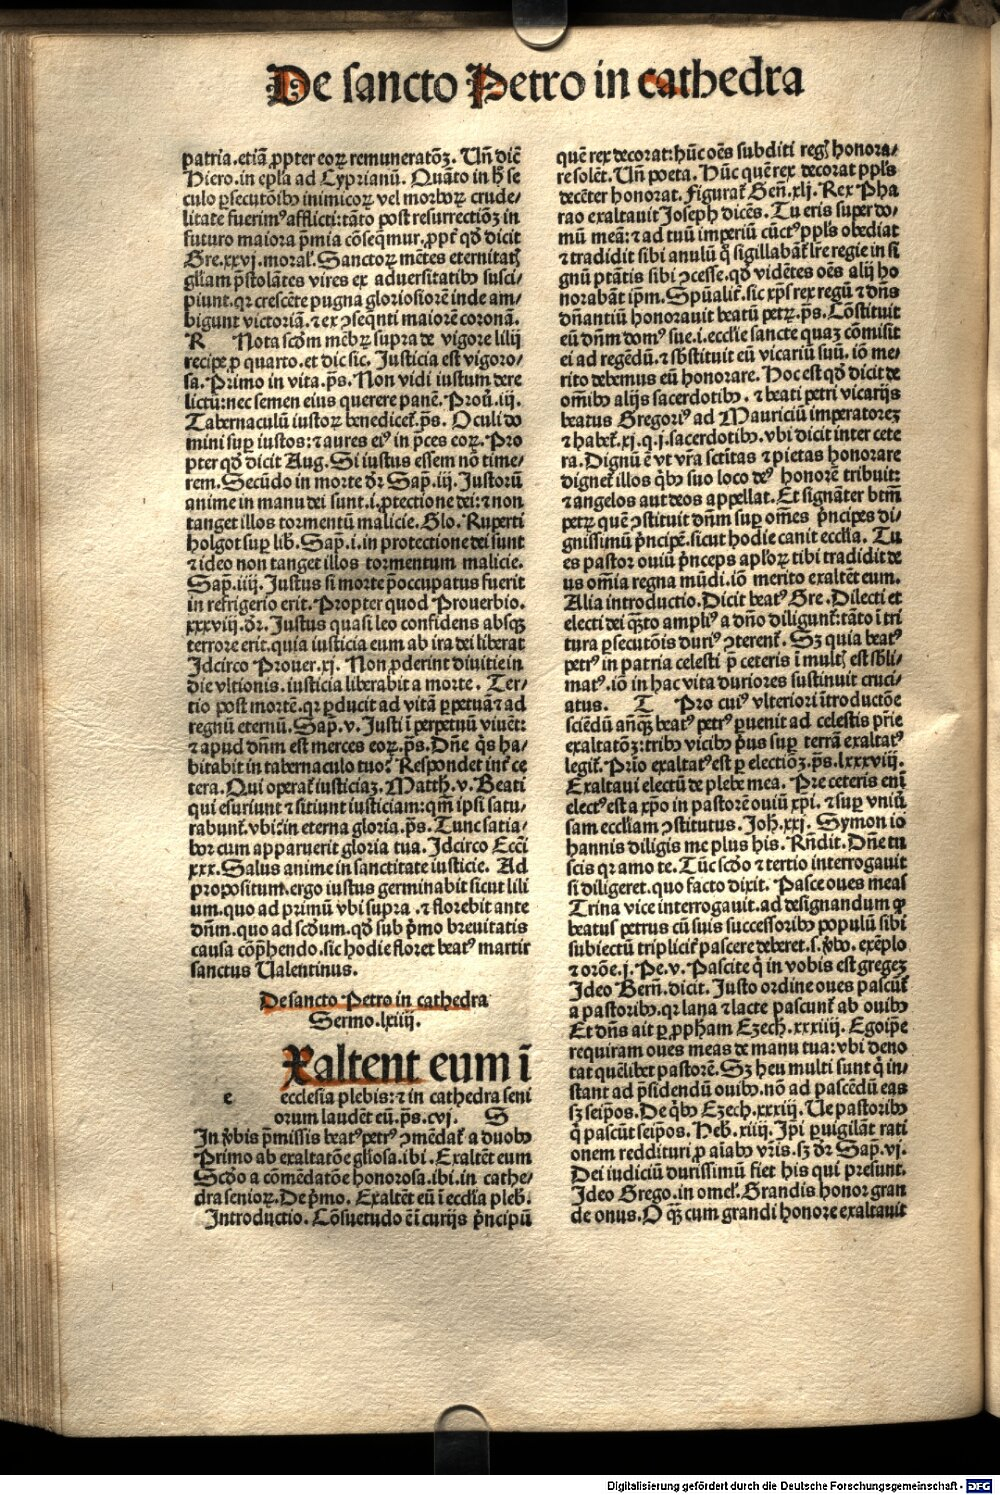 De sancto Petro in cathedra
patria.etiā ꝓpter eoꝝ remuneratōꝫ. Un̄ dic̄
Hiero.in ep̄la ad Cyprianū. Quāto in h̄ se
culo ꝑsecutōibꝰ inimicoꝝ vel morboꝝ crude-
litate fuerimꝰ afflicti:tāto post resurrectiōꝫ in
futuro maiora p̄mia cōseq̄mur.ꝓpt̄ qd̄ dicit
Gre.xxvj.moral̄. Sanctoꝝ mētes eternitatꝭ
gl̄iam p̄stolātes vires ex aduersitatibꝰ susci-
piunt.qꝛ crescēte pugna gloriosiorē inde am-
bigunt victoriā.⁊ ex ꝯseq̄nti maiorē coronā.
R Nota scd̄m mēbꝝ supra de vigore lilij
recipe ꝓ quarto.et dic sic. Justicia est vigoro-
sa. Primo in vita.ps̄. Non vidi iustum dere
lictū:nec semen eius querere panē. Prou̅.iij.
Tabernaculū iustoꝝ benedicet̄.ps̄. Oculi do
mini sup̱ iustos:⁊ aures eiꝰ in p̄ces eoꝝ. Pro
pter qd̄ dicit Aug. Si iustus essem nō time-
rem. Secūdo in morte dr̄ Sap̄.iij. Justorū
anime in manu dei sunt.i.ꝓtectione dei:⁊ non
tanget illos tormentū malicie. Glo. Ruperti
holgot sup̱ lib̄. Sap̄.i.in protectione dei sunt
⁊ ideo non tanget illos tormentum malicie.
Sap̄.iiij. Justus si morte p̄occupatus fuerit
in refrigerio erit. Propter quod Prouerbio.
xxxviij.dr̄. Justus quasi leo confidens absqꝫ
terrore erit.quia iusticia eum ab ira dei liberat
Idcirco Prouer.xj. Non ꝓderint diuitie in
die vltionis.iusticia liberabit a morte. Ter-
tio post mortē.qꝛ ꝑducit ad vitā ꝑpetuā ⁊ ad
regnū eternū. Sap̄.v. Justi ī ꝑpetuū viuēt:
⁊ apud dn̄m est merces eoꝝ.ps̄. Dn̄e q̇s ha-
bitabit in tabernaculo tuo? Respondet int̄ ce
tera. Qui operat̄ iusticiaꝫ. Matth̄.v. Beati
qui esuriunt ⁊ sitiunt iusticiam:qm̄ ipsi satu-
rabunt̄.vbi:in eterna gloria.ps̄. Tunc satia-
bor cum apparuerit gloria tua. Idcirco Ecc̄i
xxx. Salus anime in sanctitate iusticie. Ad
propositum.ergo iustus germinabit sicut lili
um.quo ad primū vbi supra.⁊ florebit ante
dn̄m.quo ad scd̄um.qd̄ sub p̄mo breuitatis
causa cōp̄hendo.sic hodie floret beatꝰ martir
sanctus Ualentinus.
De sancto Petro in cathedra
Sermo.lxiiij.
Exaltent eum ī
e ecclesia plebis:⁊ in cathedra seni
orum laudēt eū.ps̄.cvj. S
In v̄bis p̄missis beatꝰ petrꝰ ꝯmēdat̄ a duobꝰ
Primo ab exaltatōe gl̄iosa.ibi. Exaltēt eum
Scd̄o a cōmēdatōe honorosa.ibi.in cathe-
dra senioꝝ. De p̄mo. Exaltēt eū ī eccl̄ia pleb̄.
Introductio. Cōsuetudo ē ī curijs p̄ncipū
quē rex decorat:hūc oēs subditi regꝭ honora-
re solēt. Un̄ poeta. Hūc quē rex decorat ppl̄s
decēter honorat. Figurat̄ Gen̄.xlj. Rex Pha
rao exaltauit Joseph dicēs. Tu eris super do-
mū meā:⁊ ad tuū imperiū cūctꝰ ppl̄s obediat
⁊ tradidit sibi anulū q̊ sigillabāt̄ l̄re regie in si
gnū ptātis sibi ꝯcesse.qd̄ vidētes oēs alij ho
norabāt ip̄m. Spūalit̄.sic xp̄s rex regū ⁊ dn̄s
dn̄antiū honorauit beatū petꝝ.ps̄. Cōstituit
eū dn̄m domꝰ sue.i.eccl̄ie sancte quaꝫ cōmisit
ei ad regēdū.⁊ sb̄stituit eū vicariū suū.iō me-
rito debemus eū honorare. Hoc est qd̄ dicit de
om̄ibꝰ alijs sacerdotibꝰ.⁊ beati petri vicarijs
beatus Gregoriꝰ ad Mauriciū imperatoreꝫ
⁊ habet̄.xj.q.j.sacerdotibꝰ.vbi dicit inter cete
ra. Dignū ē vt vr̄a sctītas ⁊ pietas honorare
dignet̄ illos q̇bꝰ suo loco deꝰ honorē tribuit:
⁊ angelos aut deos appellat. Et signāter btm̄
petꝝ quē ꝯstituit dn̄m sup̱ om̄es p̄ncipes di-
gnissimū p̄ncipē.sicut hodie canit eccl̄ia. Tu
es pastor ouiū p̄nceps apl̄oꝝ tibi tradidit de
us om̄ia regna mūdi.iō merito exaltēt eum.
Alia introductio. Dicit beatꝰ Gre. Dilecti et
electi dei q̄ꝫto ampliꝰ a dn̄o diligunt̄:tāto ī tri
tura ꝑsecutōis duriꝰ ꝯterent̄. Sꝫ quia beatꝰ
petrꝰ in patria celesti p̄ ceteris ī multꝭ est sb̄li-
matꝰ.iō in hac vita duriores sustinuit cruci-
atus. T Pro cuiꝰ vlteriori ītroductōe
sciēdū añqꝫ beatꝰ petrꝰ ꝑuenit ad celestis pr̄ie
exaltatōꝫ:tribꝰ vicibꝰ p̄us sup̱ terrā exaltatꝰ
legit̄. Prīo exaltatꝰ est ꝑ electiōꝫ.ps̄.lxxxviij.
Exaltaui electū de plebe mea. Pre ceteris eni̅
electꝰ est a xp̄o in pastorē ouiū xp̄i.⁊ sup̱ vniū
sam eccl̄iam ꝯstitutus. Joh̄.xxj. Symon io
hannis diligis me plus his. Rn̄dit. Dn̄e tu
scis qꝛ amo te. Tūc scd̄o ⁊ tertio interrogauit
si diligeret.quo facto dixit. Pasce oues meas
Trina vice interrogauit.ad designandum ꝙ
beatus petrus cū suis successoribꝰ populū sibi
subiectū triplicit̄ pascere deberet.s.v̄bo.exēplo
⁊ orōe.j. Pe.v. Pascite q̇ in vobis est gregeꝫ
Ideo Bern̄.dicit. Justo ordine oues pascūt̄
a pastoribꝰ.qꝛ lana ⁊ lacte pascunt̄ ab ouibꝰ
Et dn̄s ait ꝑ ꝓpham Ezech̄.xxxiiij. Ego ip̄e
requiram oues meas de manu tua:vbi deno
tat quēlibet pastorē. Sꝫ heu multi sunt q̇ in-
stant ad p̄sidendū ouibꝰ.nō ad pascēdū eas
sꝫ seip̄os. De q̇bꝰ Ezech.xxxiij. Ue pastoribꝰ
q̇ pascūt seip̄os. Heb̄.xiij. Ip̄i ꝑuigilāt rati
onem reddituri ꝓ aīabꝰ vr̄is.sꝫ dr̄ Sap̄.vj.
Dei iudiciū durissimū fiet his qui presunt.
Ideo Grego.in omel̄. Grandis honor gran
de onus. O q̄ꝫ cum grandi honore exaltauit
Digitalisierung gefördert durch die Deutsche Forschungsgemeinschaft - DFG